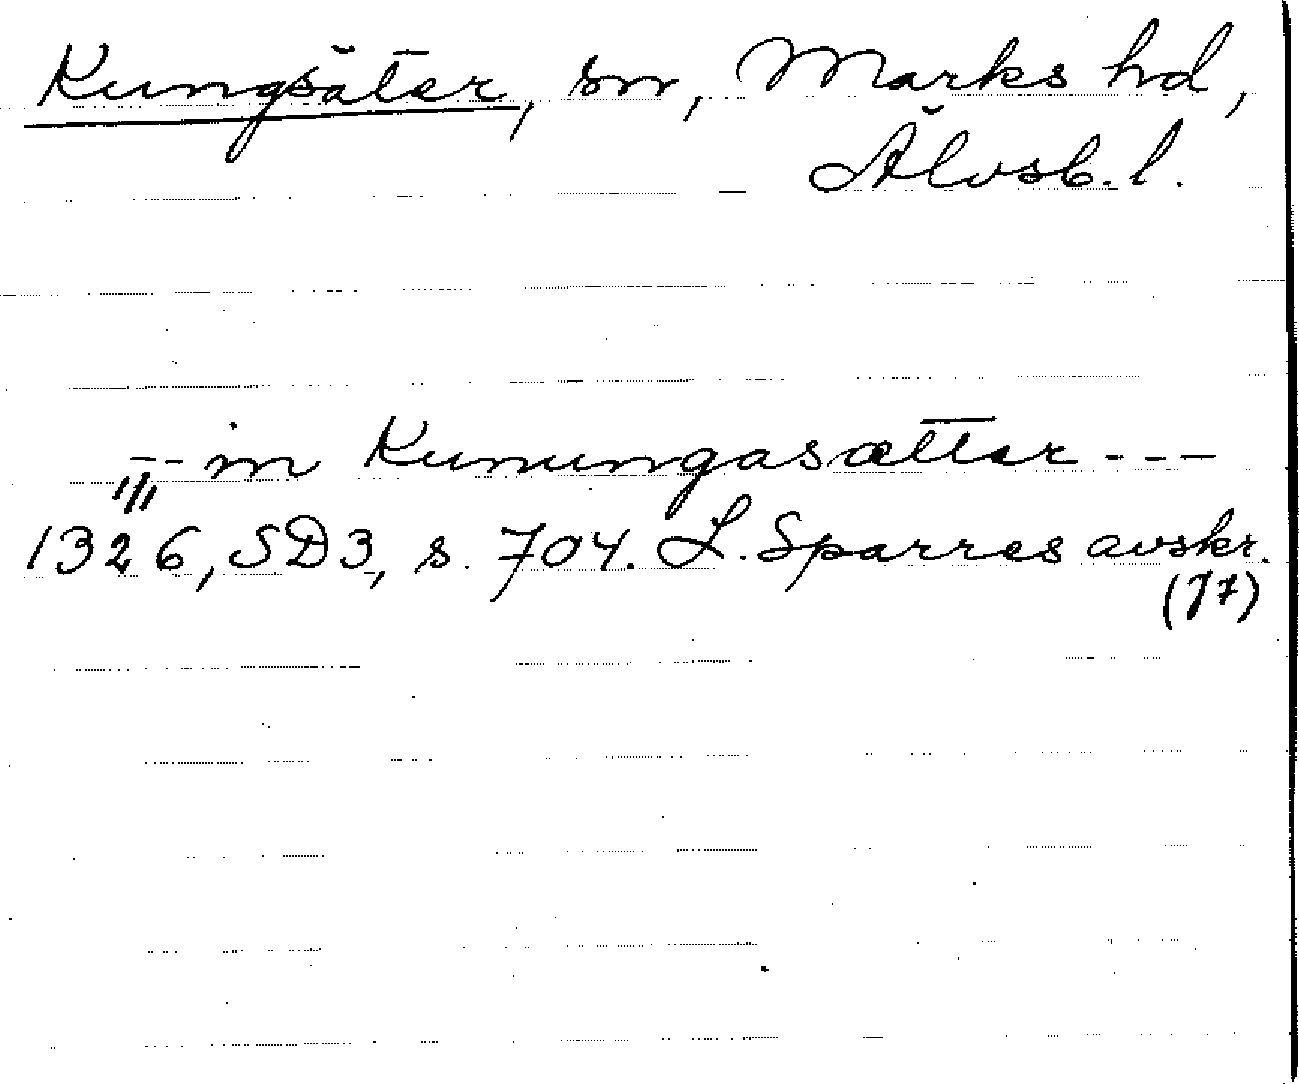 Kungsäter, sn, Marks hd,
Älvsb. l.
--- in Kunungasætter ---
1326, SD3, s. 704. L. Sparres avskr.
(77)